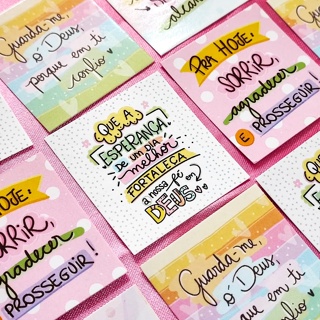 Guarda-me,
ó Deus,
porque em ti
confio
PRA HOJE:
SORRIR,
agradecer
E PROSSEGUIR!
QUE A
ESPERANÇA
DE UM DIA
melhor
FORTALEÇA
a nossa fé em
DEUS
HOJE:
RRIR,
gradecer
PROSSEGUIR!
Guarda-me,
ó Deus,
porque em ti
confio